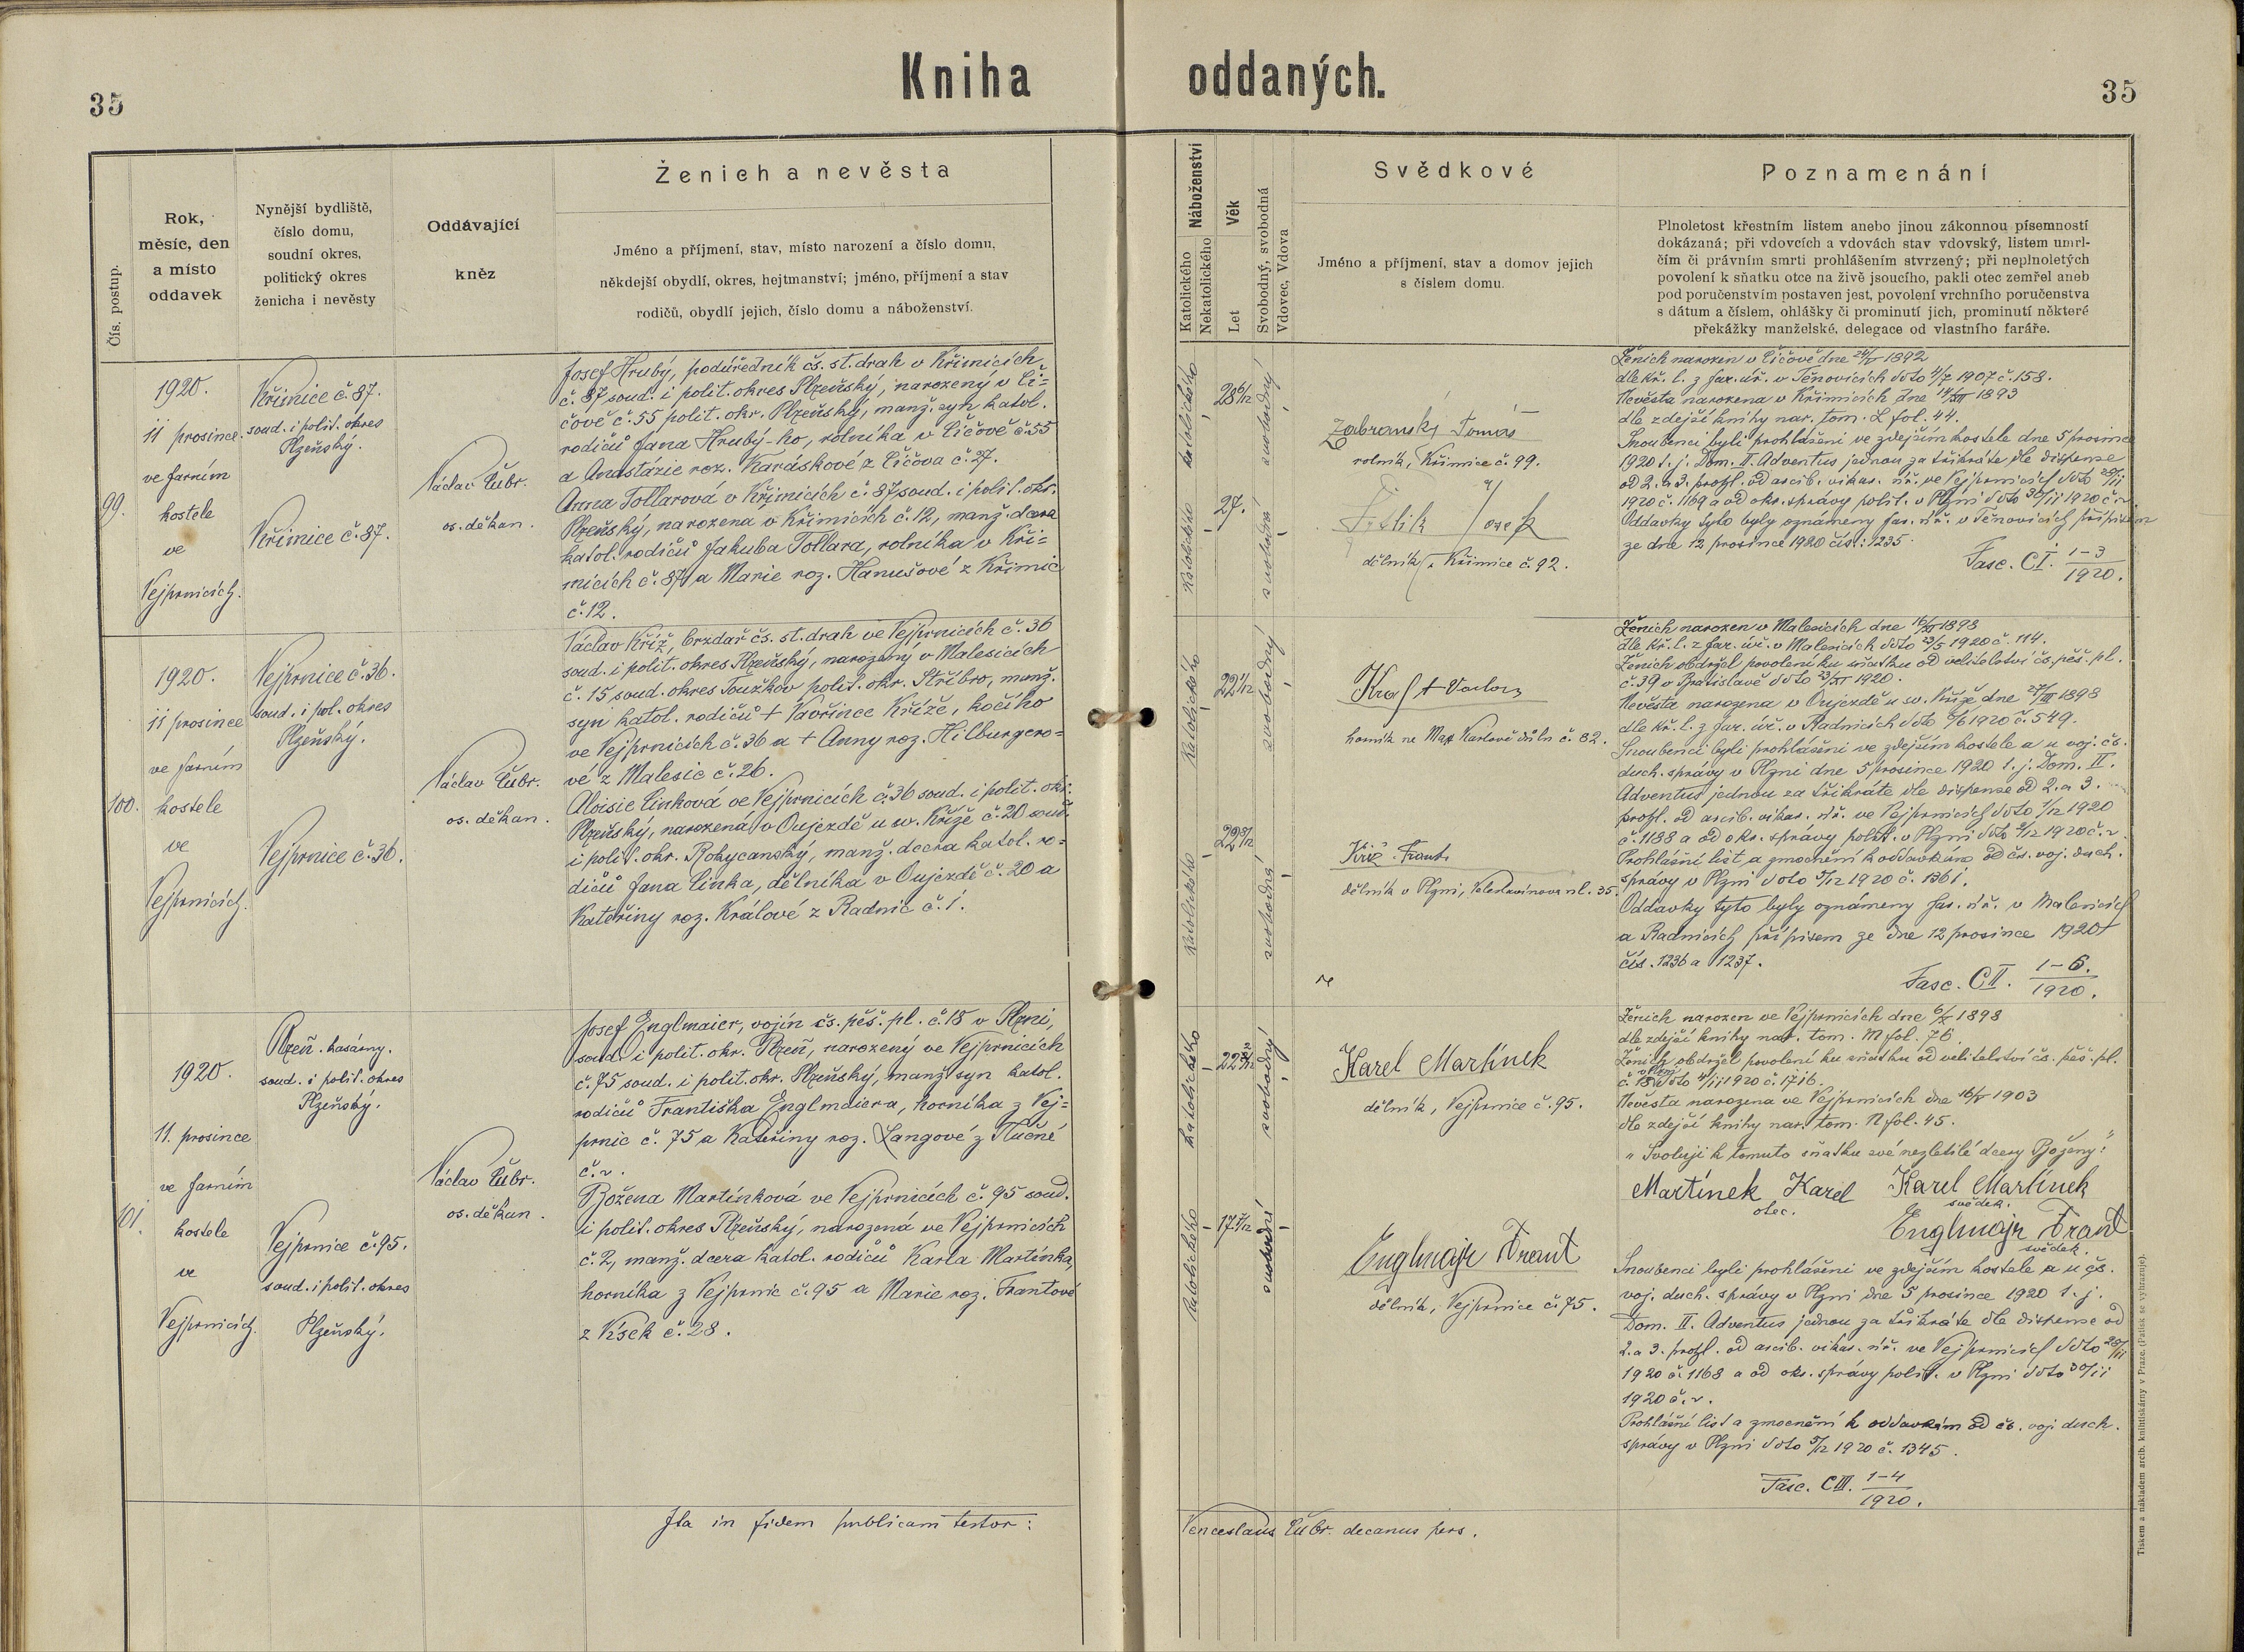 Kniha oddaných.
35
35
Čís. postup.
Rok,
měsíc, den
a místo
oddavek
Nynější bydliště,
číslo domu,
soudní okres,
politický okres
ženicha i nevěsty
Oddávající
kněz
Ženich a nevěsta
Jméno a příjmení, stav, místo narození a číslo domu,
někdejší obydlí, okres, hejtmanství; jméno, příjmení a stav
rodičů, obydlí jejich, číslo domu a náboženství.
Náboženství
Katolického
Nekatolického
Věk
Let
Svobodný, svobodná
Vdovec, Vdova
Svědkové
Jméno a příjmení, stav a domov jejich
s číslem domu.
Poznamenání
Plnoletost křestním listem anebo jinou zákonnou písemností
dokázaná; při vdovcích a vdovách stav vdovský, listem umrl-
čím či právním smrti prohlášením stvrzený; při neplnoletých
povolení k sňatku otce na živě jsoucího, pakli otec zemřel aneb
pod poručenstvím postaven jest, povolení vrchního poručenstva
s dátum a číslem, ohlášky či prominutí jich, prominutí některé
překážky manželské, delegace od vlastního faráře.
99.
1920.
11 prosince
ve farním
kostele
ve
Vejprnicích.
Křimice č. 87.
soud. i polit. okres
Plzeňský.
Křimice č. 87.
Václav Čubr.
os. děkan.
Josef Hrubý, podúředník čs. st. drah v Křimicích
č. 87 soud. i polit. okres Plzeňský, narozený v Či=
čově č. 55 polit. okr. Plzeňský, manž. syn katol.
rodičů Jana Hrubý-ho, rolníka v Čičově č. 55
a Anastázie roz. Karáskové z Čičova č. 27.
Anna Tollarová v Křimicích č. 87 soud. i polit. okr.
Plzeňský, narozena v Křimicích č. 12, manž. dcera
katol. rodičů Jakuba Tollara, rolníka v Kři=
micích č. 87 a Marie roz. Hanušové z Křimic
č. 12.
katolického
28 6/12
svobodný
katolického
27.
svobodná
Zabranský Tomáš
rolník, Křimice č. 99.
Josef
dělník, Křimice č. 92.
Ženich narozen v Čičově dne 24/V 1892
dle kř. l. z far. úř. v Těnovicích ddto 4/7 1907 č. 158.
Nevěsta narozena v Křimicích dne 14/XII 1893
dle zdejší knihy nar. tom. L fol. 44.
Snoubenci byli prohlášeni ve zdejším kostele dne 5 prosince
1920 t. j. Dom. II. Adventus jednou za třikráte dle dispense
od 2. a 3. prohl. od arcib. vikar. úř. ve Vejprnicích ddto 28/11
1920 č. 1169 a od okr. správy polit. v Plzni ddto 30/11 1920 č. r.
Oddavky tyto byly oznámeny far. úř. v Těnovicích přípisem
ze dne 12 prosince 1920 čís.: 1235.
Fasc. CI. 1-3/1920.
100.
1920.
11 prosince
ve farním
kostele
ve
Vejprnicích.
Vejprnice č. 36.
soud. i pol. okres
Plzeňský.
Vejprnice č. 36.
Václav Čubr.
os. děkan.
Václav Kříž, brzdař čs. st. drah ve Vejprnicích č. 36
soud. i polit. okres Plzeňský, narozený v Malesicích
č. 15 soud. okres Touškov polit. okr. Stříbro, manž.
syn katol. rodičů + Vavřince Kříže, kočího
ve Vejprnicích č. 36 a + Anny roz. Hilburgero=
vé z Malesic č. 26.
Aloisie Činková ve Vejprnicích č. 36 soud. i polit. okr.
Plzeňský, narozená v Oujezdě u sv. Kříže č. 20 soud.
i polit. okr. Rokycanský, manž. dcera katol. ro=
dičů Jana Činka, dělníka v Oujezdě č. 20 a
Kateřiny roz. Králové z Radnic č. 1.
katolického
22 1/12
svobodný
katolického
22 8/12
svobodná
Kraft Václav
horník na Max Karlově důlu č. 82.
Kříž Frant.
dělník v Plzni, Veleslavínova ul. 35.
Ženich narozen v Malesicích dne 16/XI 1898
dle kř. l. z far. úř. v Malesicích ddto 23/5 1920 č. 114.
Ženich obdržel povolení ku sňatku od velitelství čs. pěš. pl.
č. 39 v Bratislavě ddto 23/XI 1920.
Nevěsta narozena v Oujezdě u sv. Kříže dne 27/III 1898
dle kř. l. z far. úř. v Radnicích ddto 6/6 1920 č. 549.
Snoubenci byli prohlášeni ve zdejším kostele a u voj. čs.
duch. správy v Plzni dne 5 prosince 1920 t. j. Dom. II.
Adventus jednou za třikráte dle dispense od 2. a 3.
prohl. od arcib. vikar. úř. ve Vejprnicích ddto 1/12 1920
č. 1188 a od okr. správy polit. v Plzni ddto 2/12 1920 č. r.
Prohlášní list a zmocnění k oddavkám od čs. voj. duch.
správy v Plzni ddto 9/12 1920 č. 1361.
Oddavky tyto byly oznámeny far. úř. v Malesicích
a Radnicích přípisem ze dne 12 prosince 1920
čís. 1236 a 1237.
Fasc. CII. 1-6./1920.
101.
1920.
11. prosince
ve farním
kostele
ve
Vejprnicích.
Plzeň. kasárny.
soud. i polit. okres
Plzeňský.
Vejprnice č. 95.
soud. i polit. okres
Plzeňský.
Václav Čubr.
os. děkan.
Josef Englmaier, vojín čs. pěš. pl. č. 18 v Plzni,
soud. i polit. okr. Plzeň, narozený ve Vejprnicích
č. 75 soud. i polit. okr. Plzeňský, manž. syn katol.
rodičů Františka Englmaiera, horníka z Vej=
prnic č. 75 a Kateřiny roz. Langové z Tlučné
č. r.
Božena Martínková ve Vejprnicích č. 95 soud.
i polit. okres Plzeňský, narozená ve Vejprnicích
č. 2, manž. dcera katol. rodičů Karla Martínka,
horníka z Vejprnic č. 95 a Marie roz. Frantové
z Vísek č. 28.
katolického
22 2/12
svobodný
katolického
17 7/12
svobodná
Karel Martínek
dělník, Vejprnice č. 95.
Englmajr Frant
dělník, Vejprnice č. 75.
Ženich narozen ve Vejprnicích dne 6/X 1898
dle zdejší knihy nar. tom. M fol. 76.
Ženich obdržel povolení ku sňatku od velitelství čs. pěš. pl.
č. 18 v Plzni ddto 4/11 1920 č. 1716.
Nevěsta narozena ve Vejprnicích dne 16/V 1903
dle zdejší knihy nar. tom. N fol. 45.
"Svoluji k tomuto sňatku své nezletilé dcery Boženy:"
Martínek Karel Karel Martínek
otec. svědek.
Englmajr Frant
svědek.
Snoubenci byli prohlášeni ve zdejším kostele a u čs.
voj. duch. správy v Plzni dne 5 prosince 1920 t. j.
Dom. II. Adventus jednou za třikráte dle dispense od
2. a 3. prohl. od arcib. vikar. úř. ve Vejprnicích ddto 28/11
1920 č. 1168 a od okr. správy polit. v Plzni ddto 30/11
1920 č. r.
Prohlášní list a zmocnění k oddavkám od čs. voj. duch.
správy v Plzni ddto 9/12 1920 č. 1345.
Fasc. CIII. 1-4/1920.
Ita in fidem publicam testor:
Venceslaus Čubr. decanus pers.
Tiskem a nákladem arcib. knihtiskárny v Praze. (Patisk se vyhrazuje).